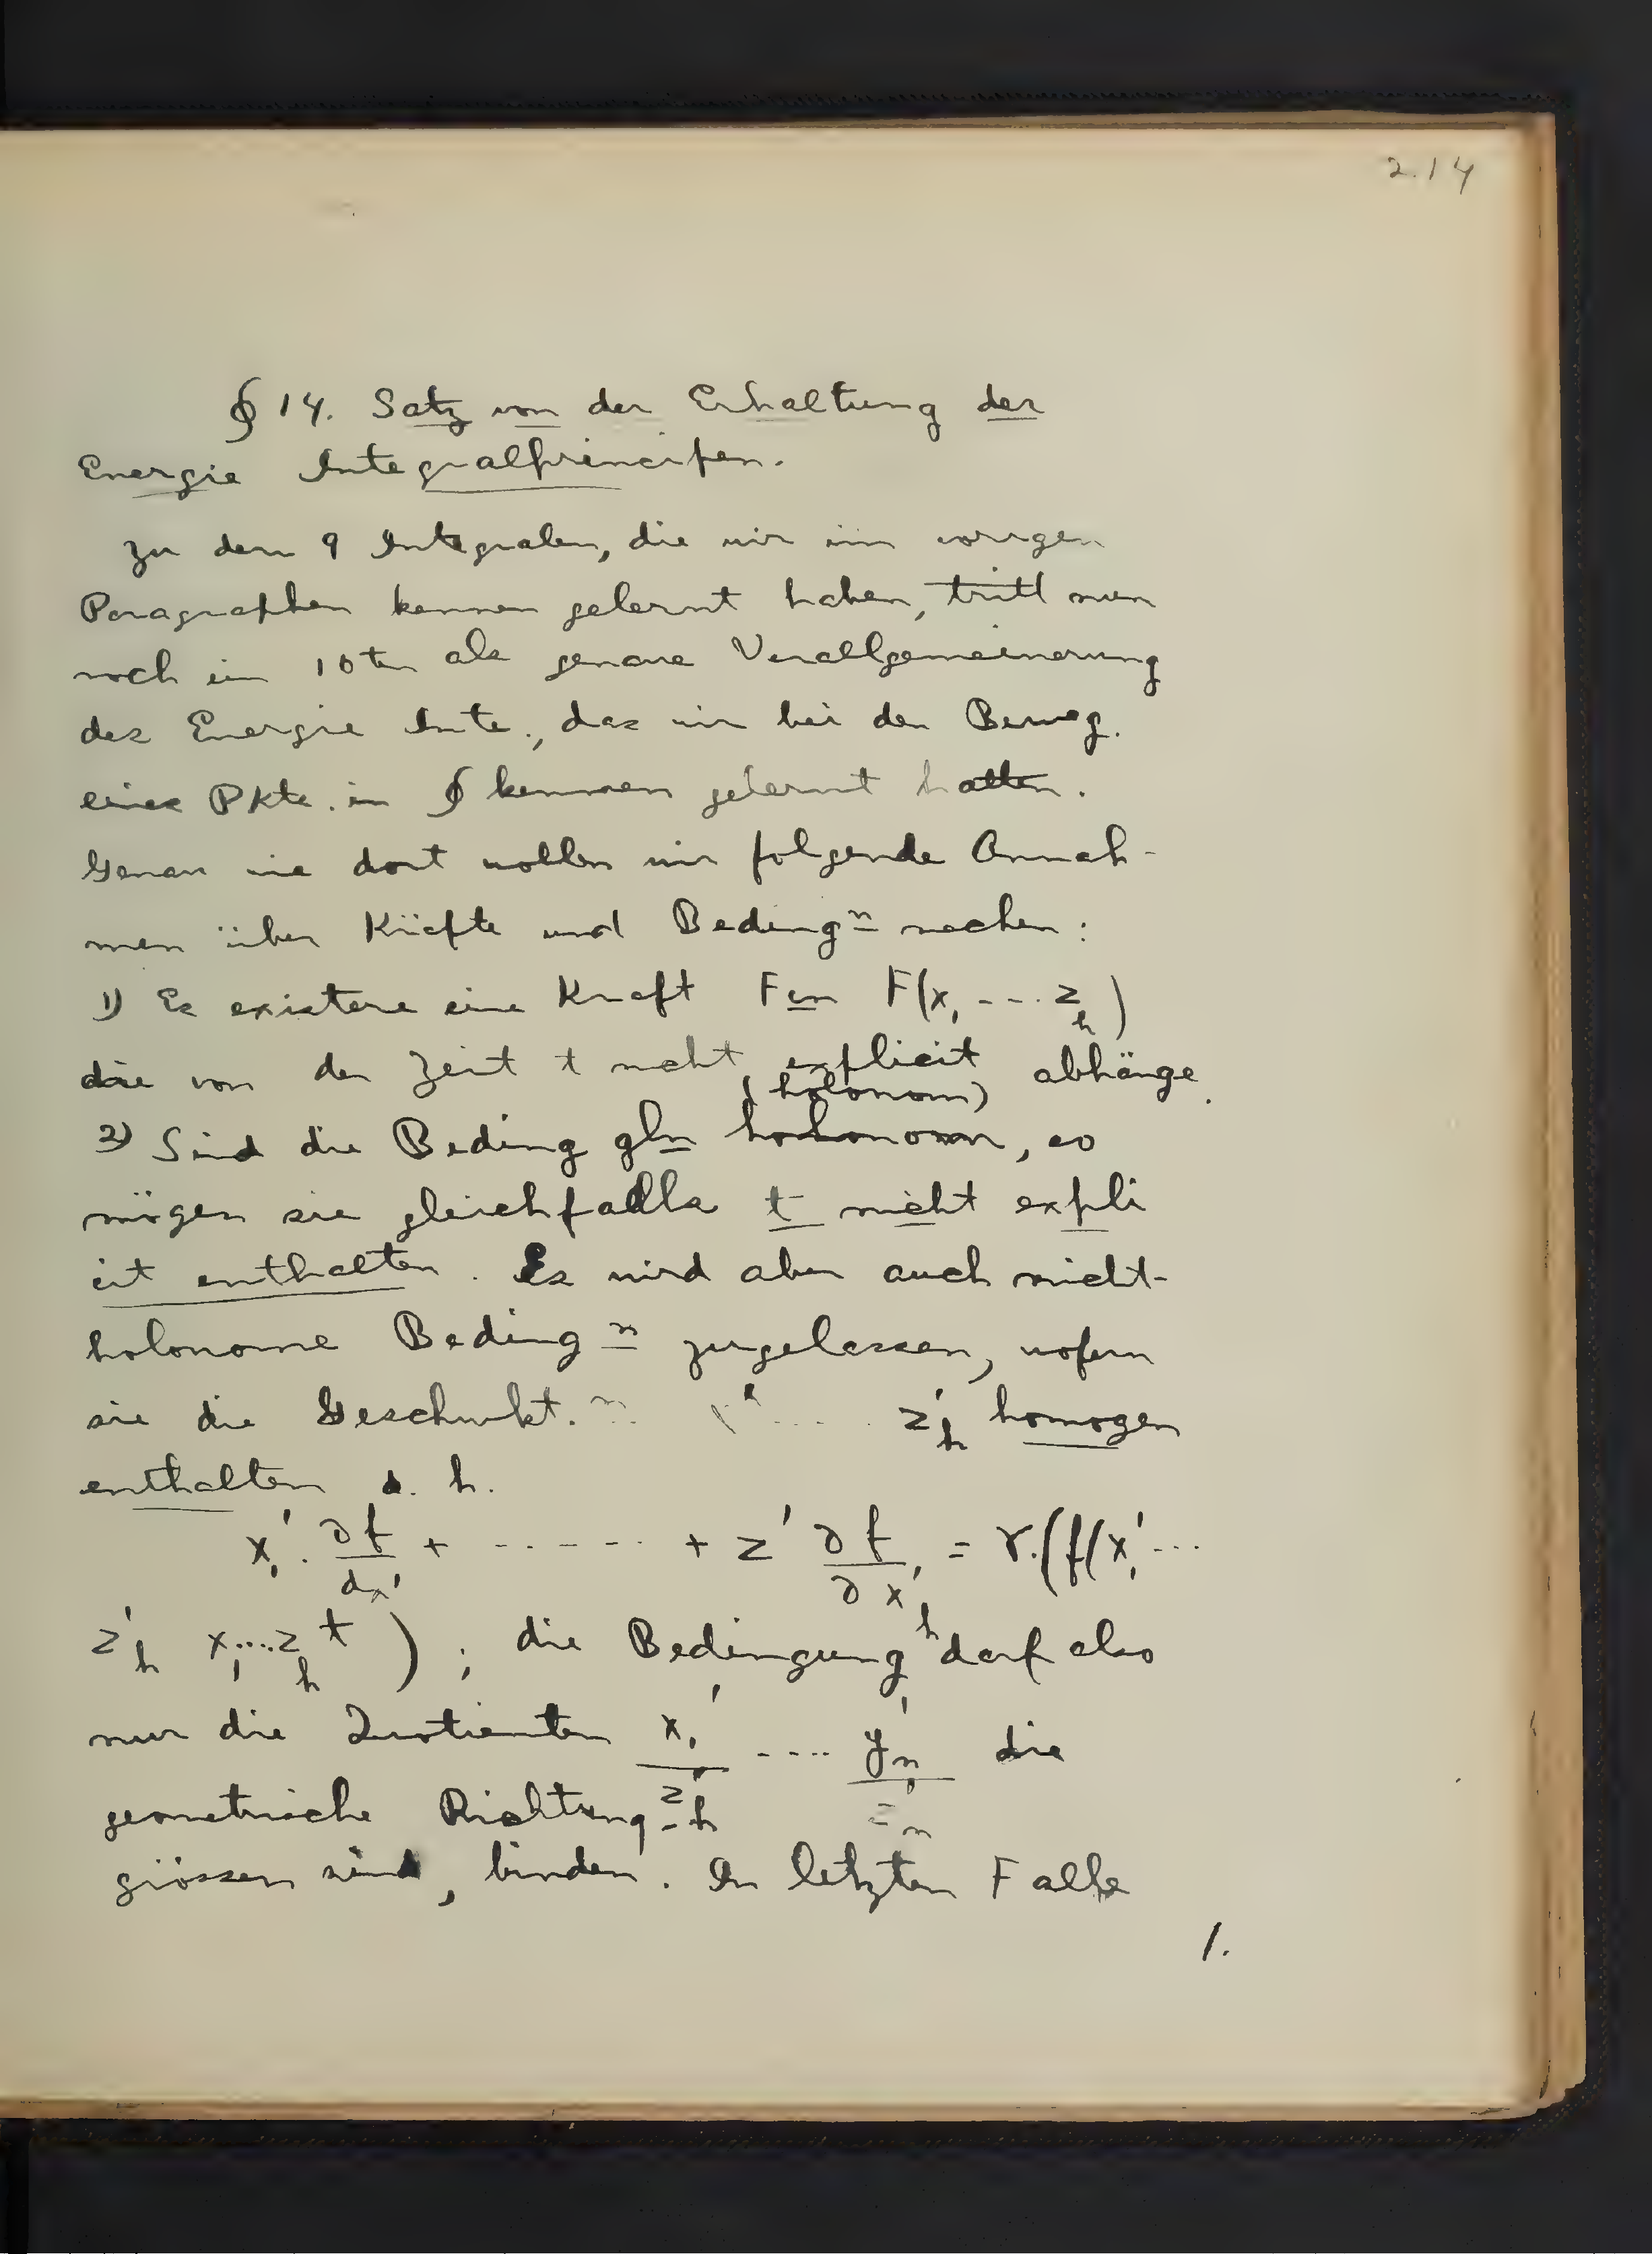 2.14
§ 14. Satz von der Erhaltung der
Energie Integralprincipen.
Zu den 9 Integralen, die wir im vorigen
Paragraphen kennen gelernt haben, tritt nun
noch ein 10ten als genaue Verallgemeinerung
des Energie Inte., das wir bei den Beweg.
eines Pkte. in § kennen gelernt hatten.
Genau wie dort wollen wir folgende Annah-
men über Kräfte und Beding<sup>n</sup> machen:
1) Es existere eine Kraft F<sup></sup>en F(x₁ --- z_h)
die von der Zeit t nicht explicit abhänge.
(holonom)
2) Sind die Beding gln holonom, so
mögen sie gleichfalls t nicht expli
cit enthalten. Es wird aber auch nicht-
holonome Beding<sup>n</sup> zugelassen, wofern
sie die Geschwkt. .... z'_h homogen
enthalten d. h.
x₁' . ∂f/∂x₁' + ------ + z' ∂f/∂x'_h = γ.(f(x₁' ...
z'_h x₁...z_h t) ; die Bedingung darf also
nur die Quotienten x₁'/z'_h .... y'_n/z'_n die
geometrische Richtung
grössen sind, binden. In letzten Falle
1.